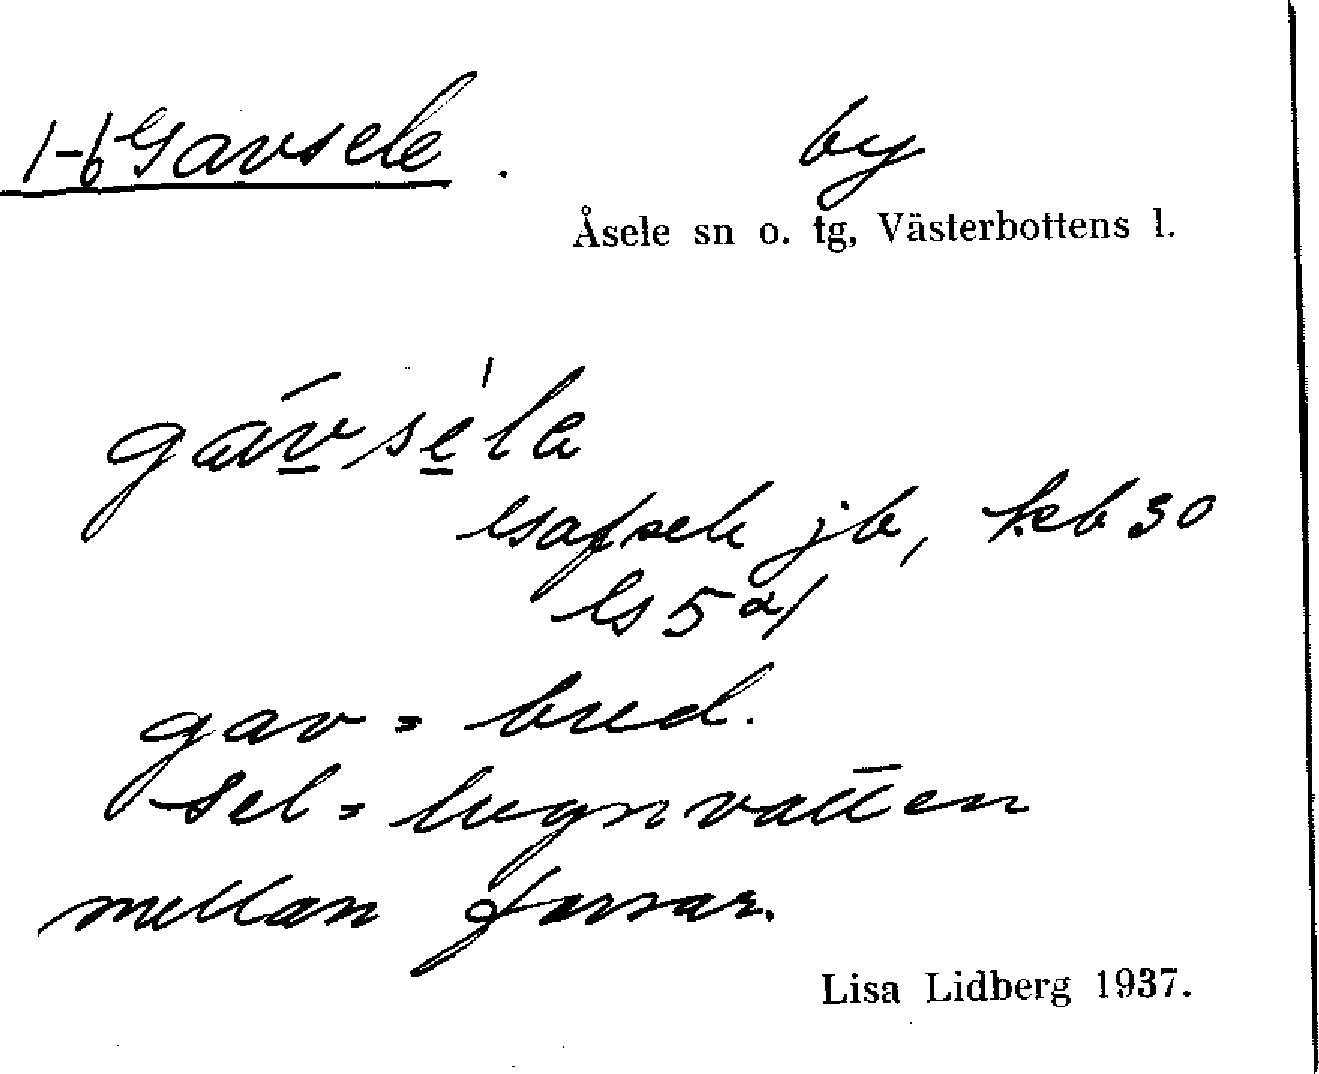 1-6 Gavsele. by
Åsele sn o. tg, Västerbottens l.
gavsela
Gafsele jb, keb 30
Gs 5
gav = bred.
sel = lugnvatten
mellan forsar.
Lisa Lidberg 1937.